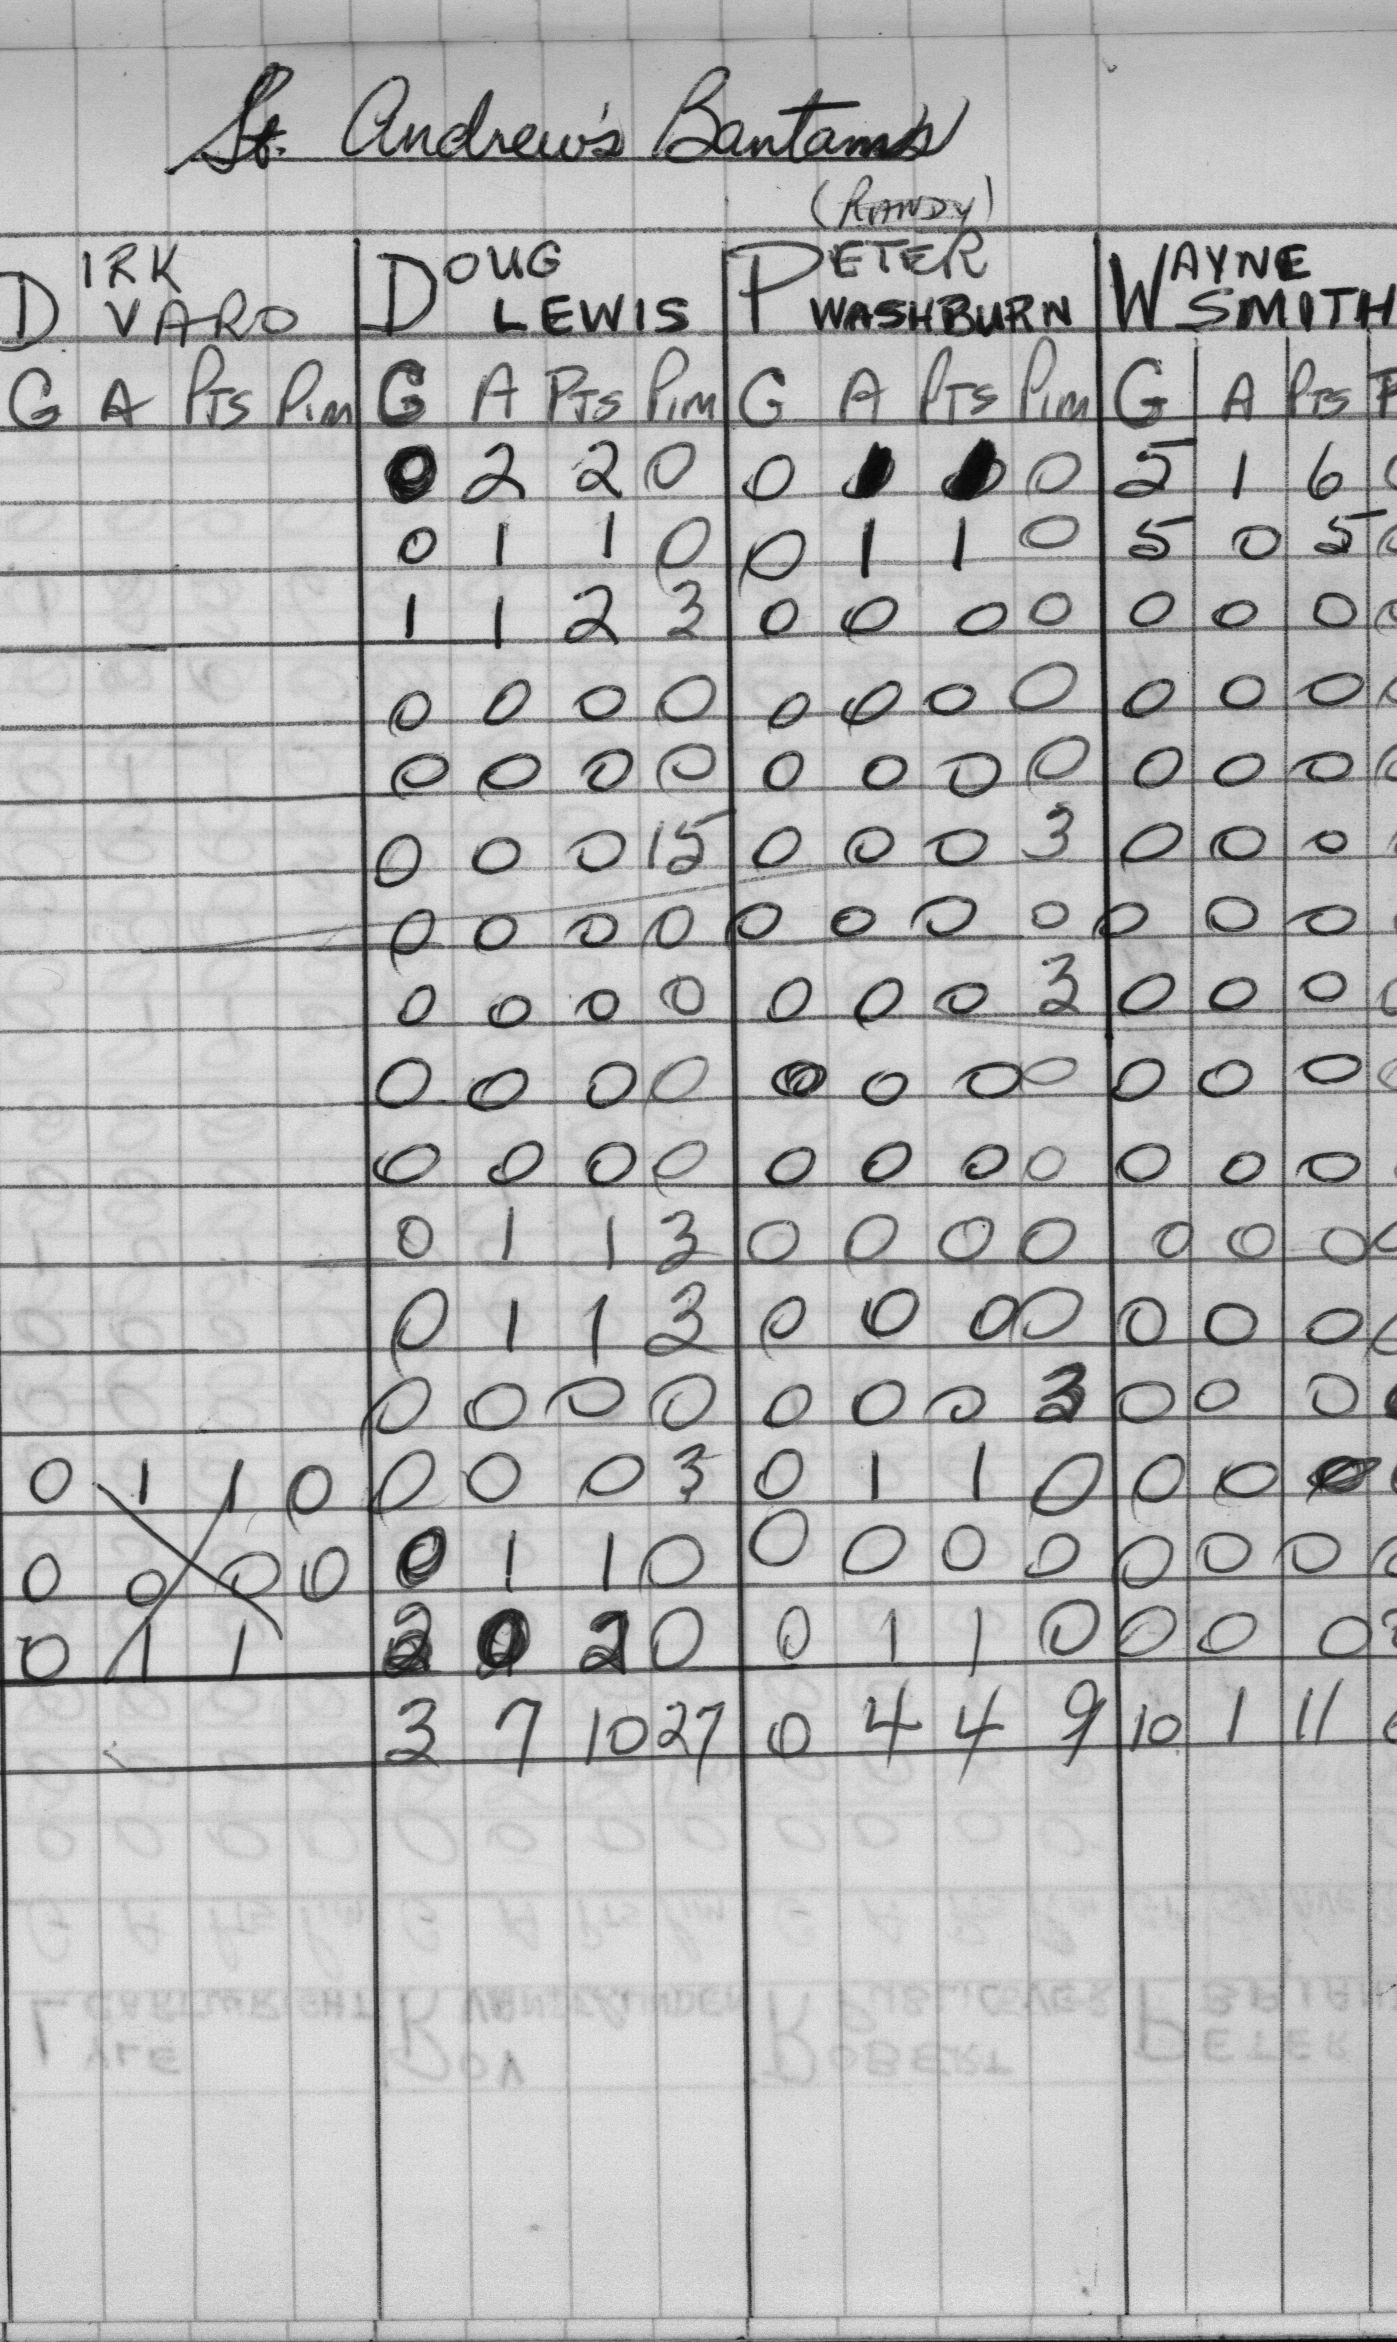 St. Andrew's Bantams
(RANDY)
DIRK VARO DOUG LEWIS PETER WASHBURN WAYNE SMITH
G A PTS PIM G A PTS PIM G A PTS PIM G A PTS P
0 2 2 0 0 1 1 0 5 1 6 0
0 1 1 0 0 1 1 0 5 0 5 0
1 1 2 3 0 0 0 0 0 0 0 0
0 0 0 0 0 0 0 0 0 0 0 0
0 0 0 0 0 0 0 0 0 0 0 0
0 0 0 15 0 0 0 3 0 0 0
0 0 0 0 0 0 0 0 0 0 0
0 0 0 0 0 0 0 3 0 0 0 0
0 0 0 0 0 0 0 0 0 0 0 0
0 0 0 0 0 0 0 0 0 0 0
0 1 1 3 0 0 0 0 0 0 0 0
0 1 1 3 0 0 0 0 0 0 0 0
0 0 0 0 0 0 0 3 0 0 0
0 1 1 0 0 0 0 3 0 1 1 0 0 0 0
0 0 0 0 0 1 1 0 0 0 0 0 0 0 0 0
0 1 1 2 0 2 0 0 1 1 0 0 0 0
3 7 10 27 0 4 4 9 10 1 11